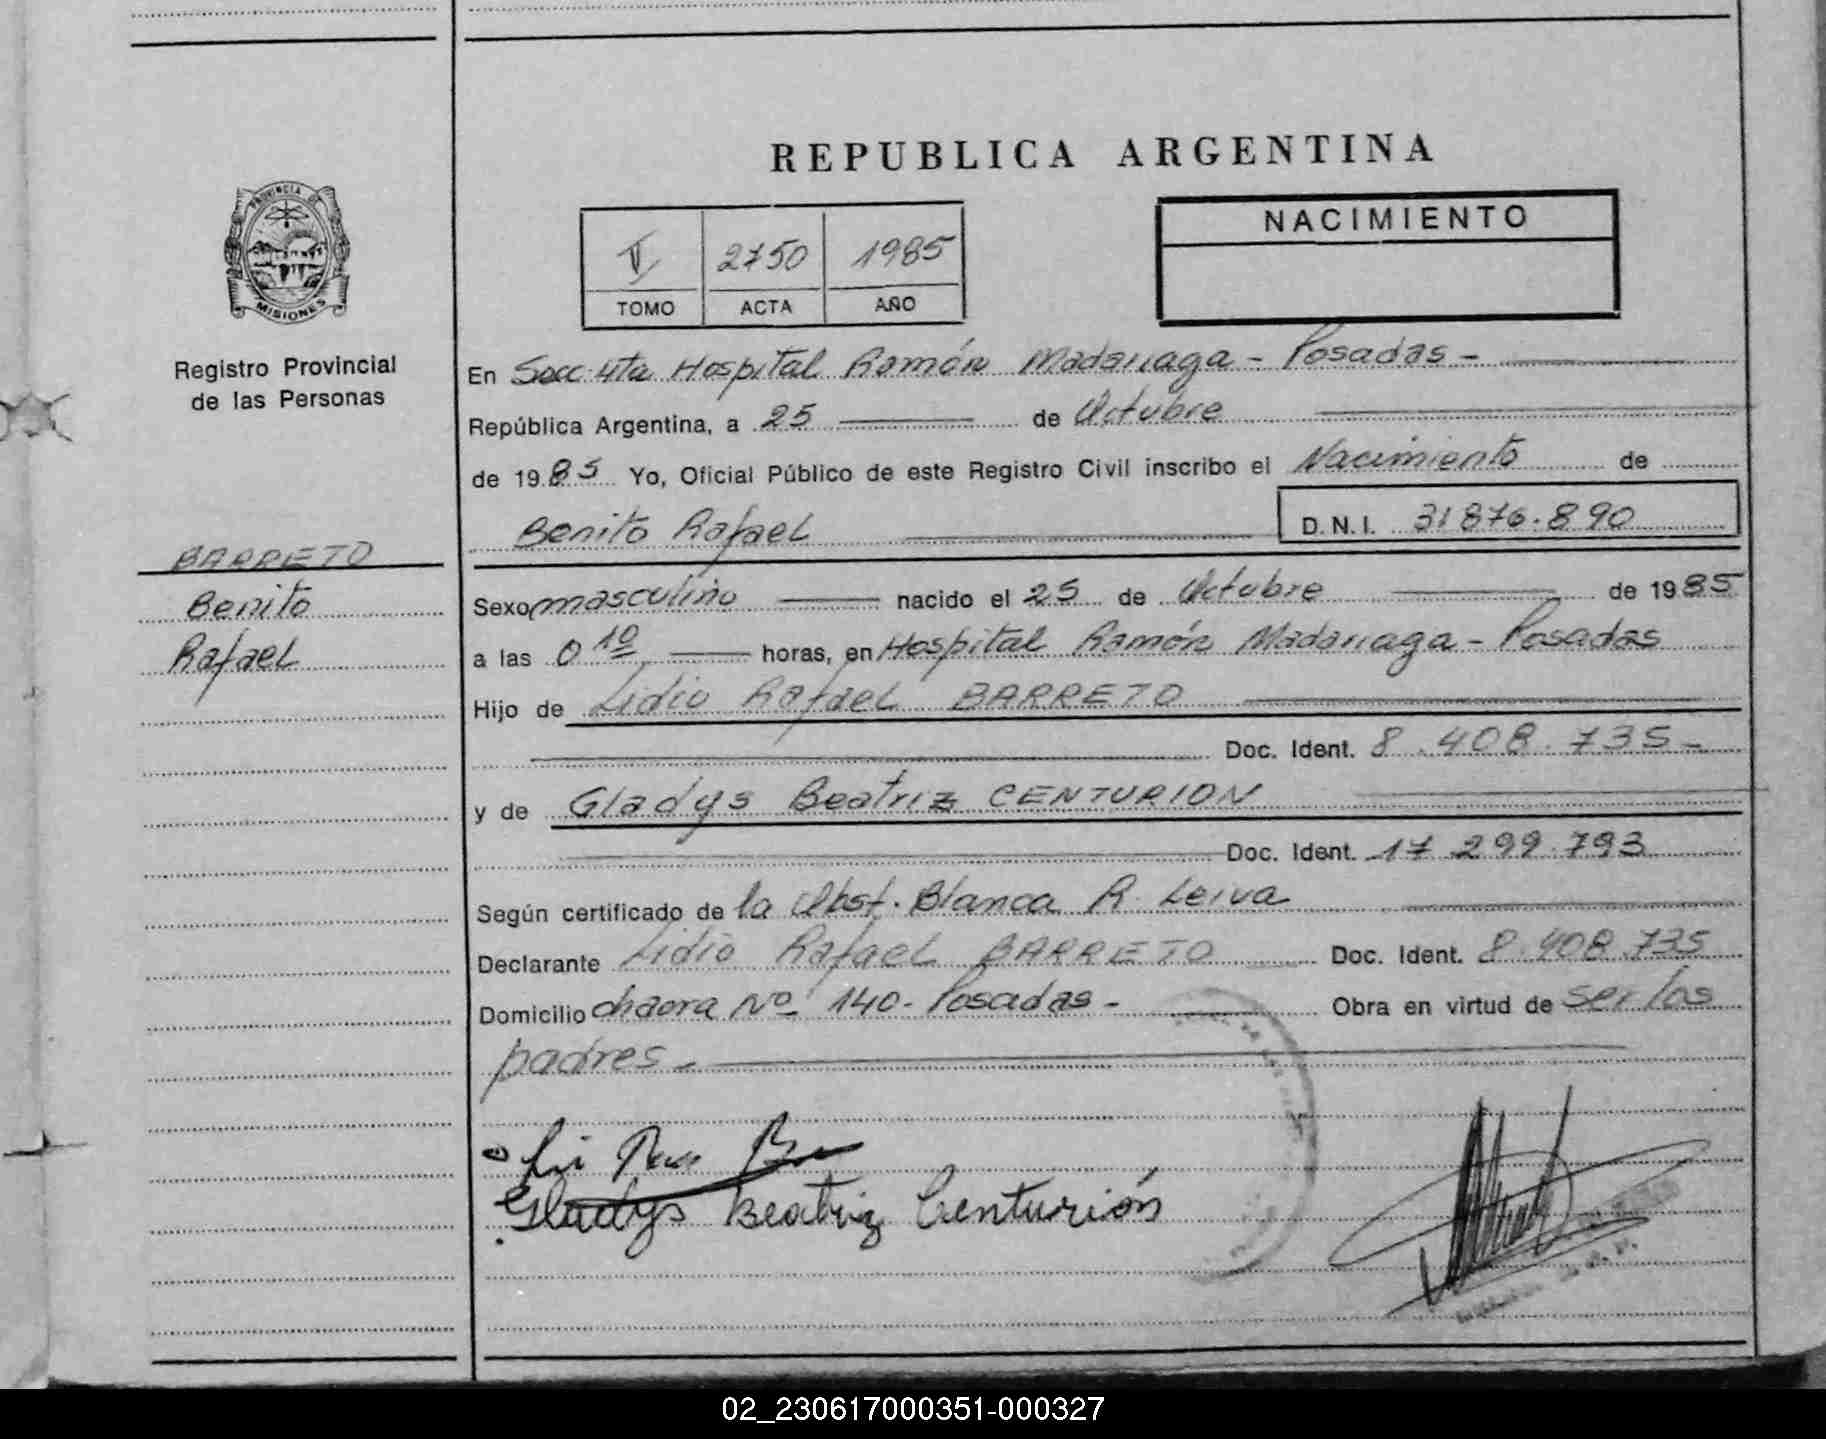 REPUBLICA ARGENTINA
PROVINCIA DE
MISIONES
Registro Provincial
de las Personas
BARRETO
Benito
Rafael
V 2750 1985
TOMO ACTA AÑO
NACIMIENTO
En Secc. 4ta Hospital Ramón Madariaga - Posadas -
República Argentina, a 25 de Octubre
de 1985 Yo, Oficial Público de este Registro Civil inscribo el Nacimiento de
Benito Rafael D.N.I. 31876.890
Sexo masculino nacido el 25 de Octubre de 1985
a las 0 10 horas, en Hospital Ramón Madariaga - Posadas
Hijo de Lidio Rafael BARRETO
Doc. Ident. 8.408.735-
y de Gladys Beatriz CENTURION
Doc. Ident. 17.299.793
Según certificado de la Obst. Blanca R. Leiva
Declarante Lidio Rafael BARRETO Doc. Ident. 8.408.735
Domicilio chacra Nº 140 - Posadas - Obra en virtud de ser los
padres -
Gladys Beatriz Centurión
02_230617000351-000327